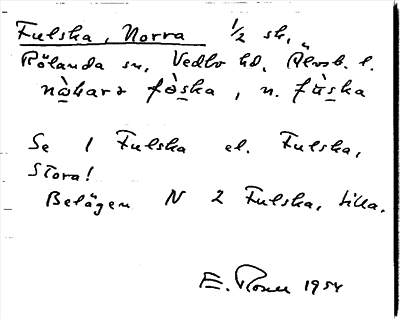 Fulska, Norra 1/2 sk,
Rölanda sn, Vedbo hd, Älvsb. l.
nòhars fòska, n. fùska
Se 1 Fulska el. Fulska,
Stora!
Belägen N 2 Fulska, Lilla.
E. Rosen 1954